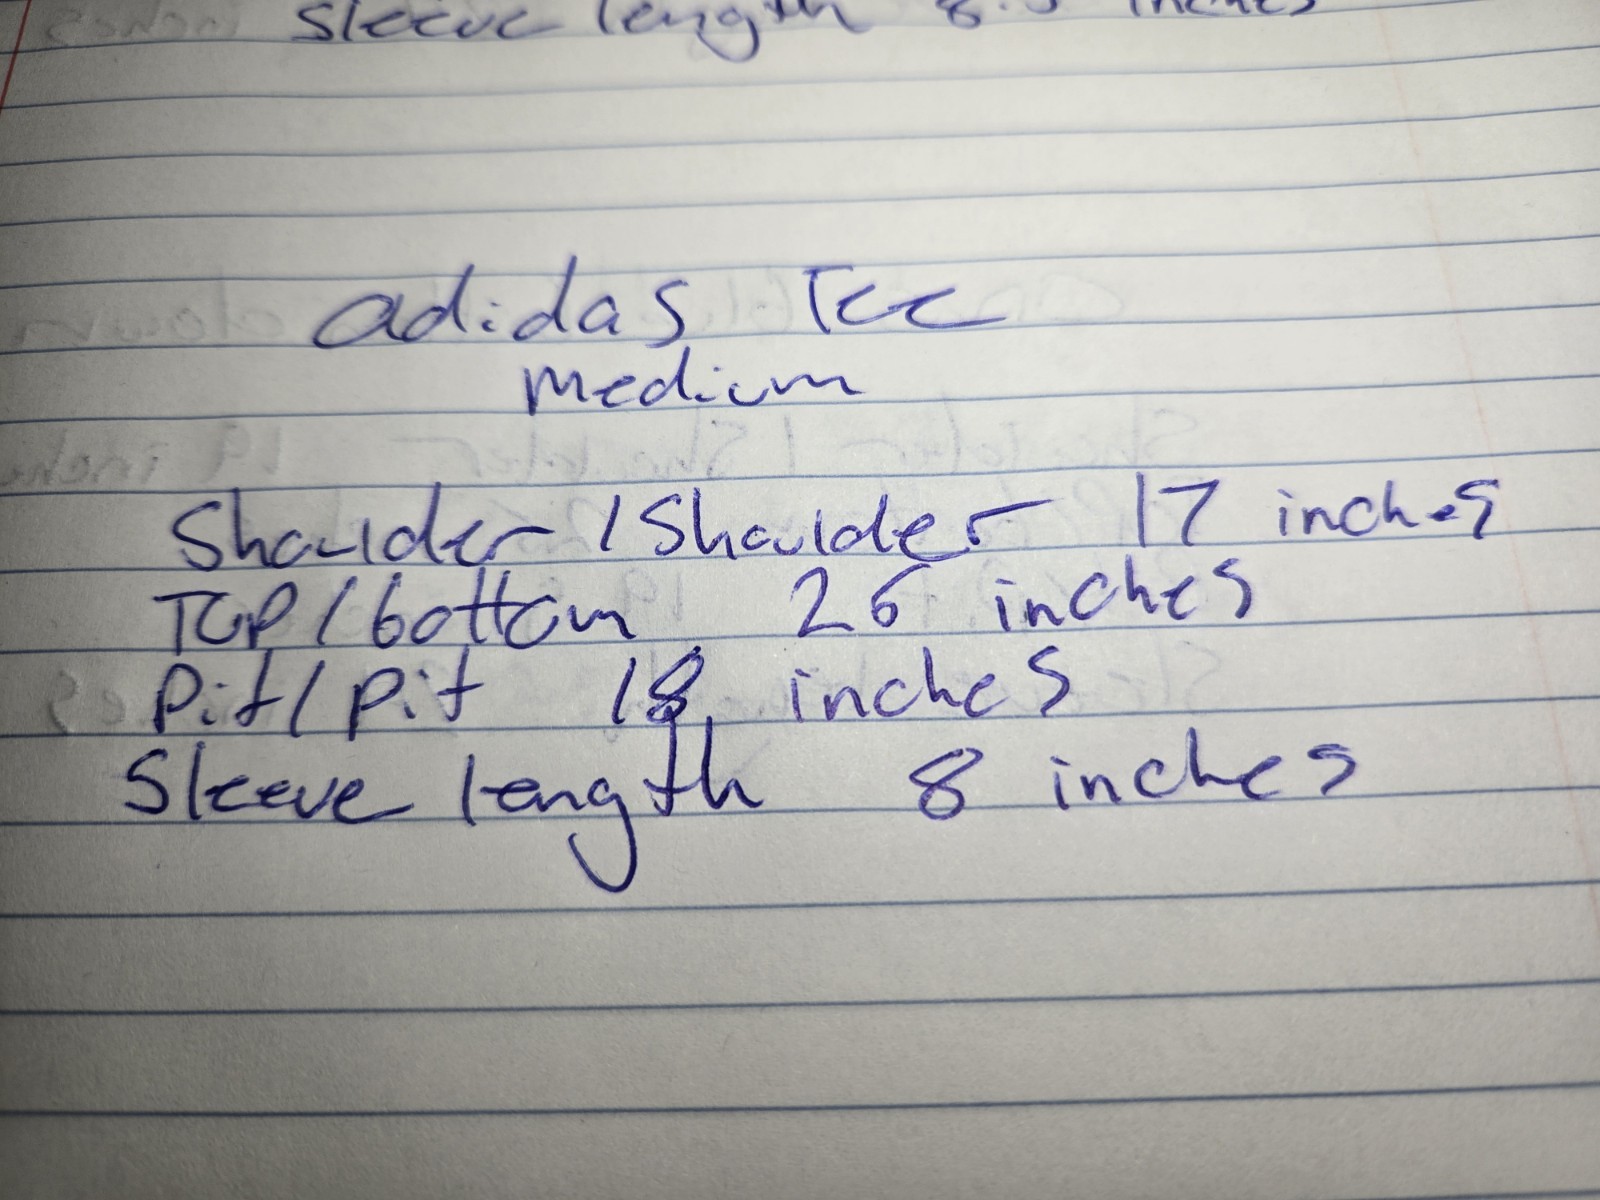 Sleeve length 8.5 inches
adidas Tee
medium
Shoulder / Shoulder 17 inches
Top / bottom 26 inches
Pit / pit 18 inches
Sleeve length 8 inches